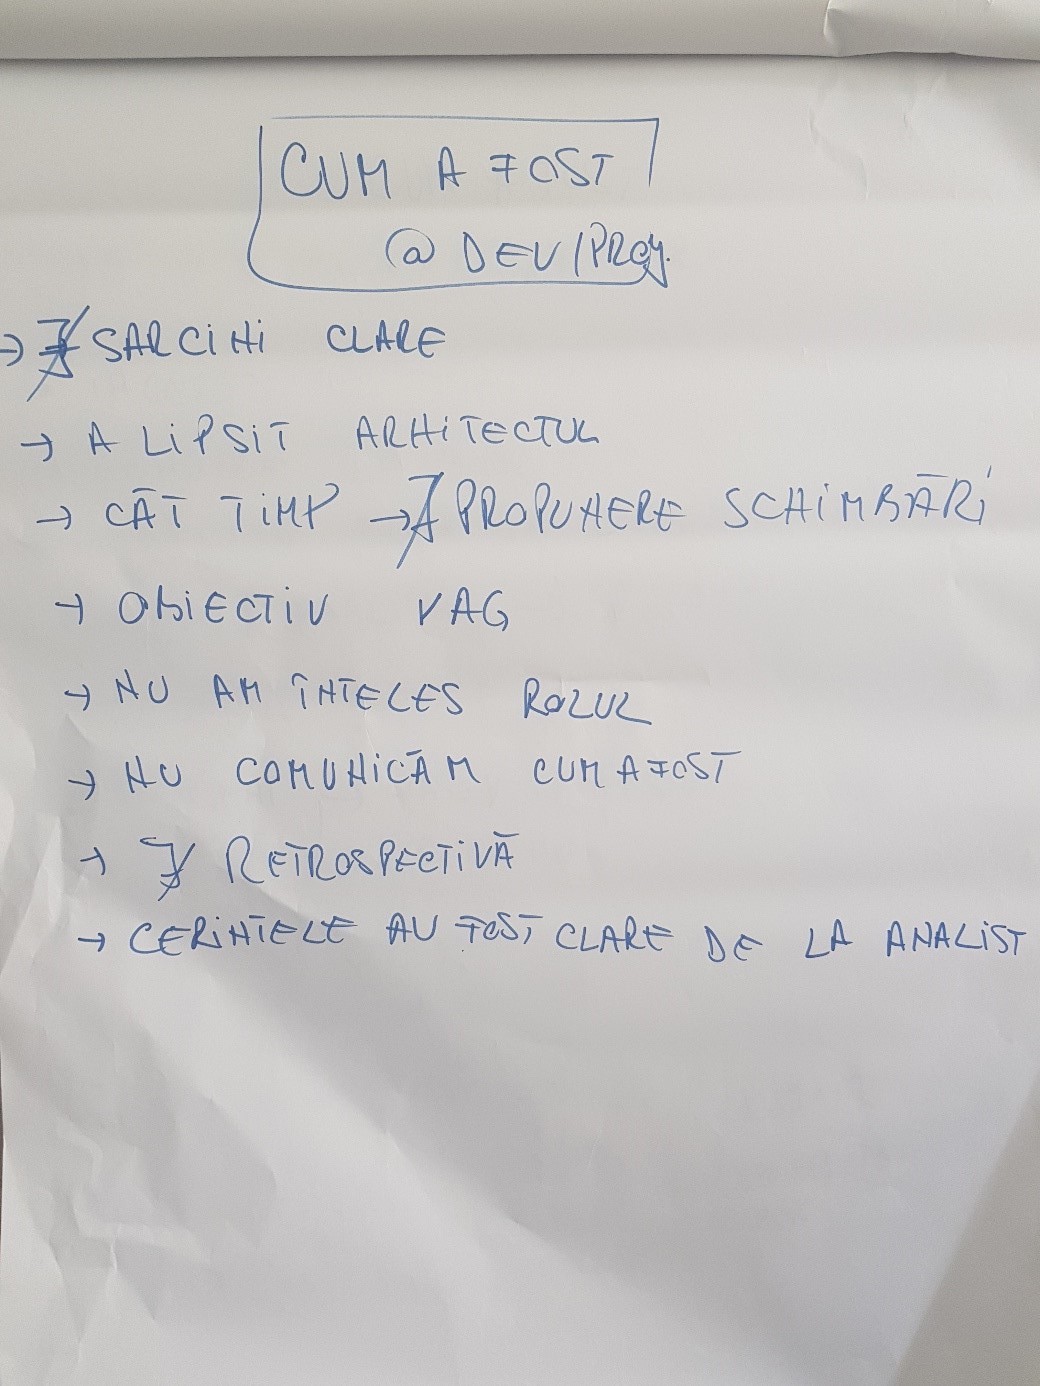 CUM A FOST
@ DEV/PROJ.
→ ∄ SARCINI CLARE
→ A LIPSIT ARHITECTUL
→ CĂT TIMP → ∄ PROPUNERE SCHIMBĂRI
→ OBIECTIV VAG
→ NU AM ÎNTELES ROLUL
→ NU COMUNICĂM CUM A FOST
→ ∄ RETROSPECTIVĂ
→ CERINTELE AU FOST CLARE DE LA ANALIST